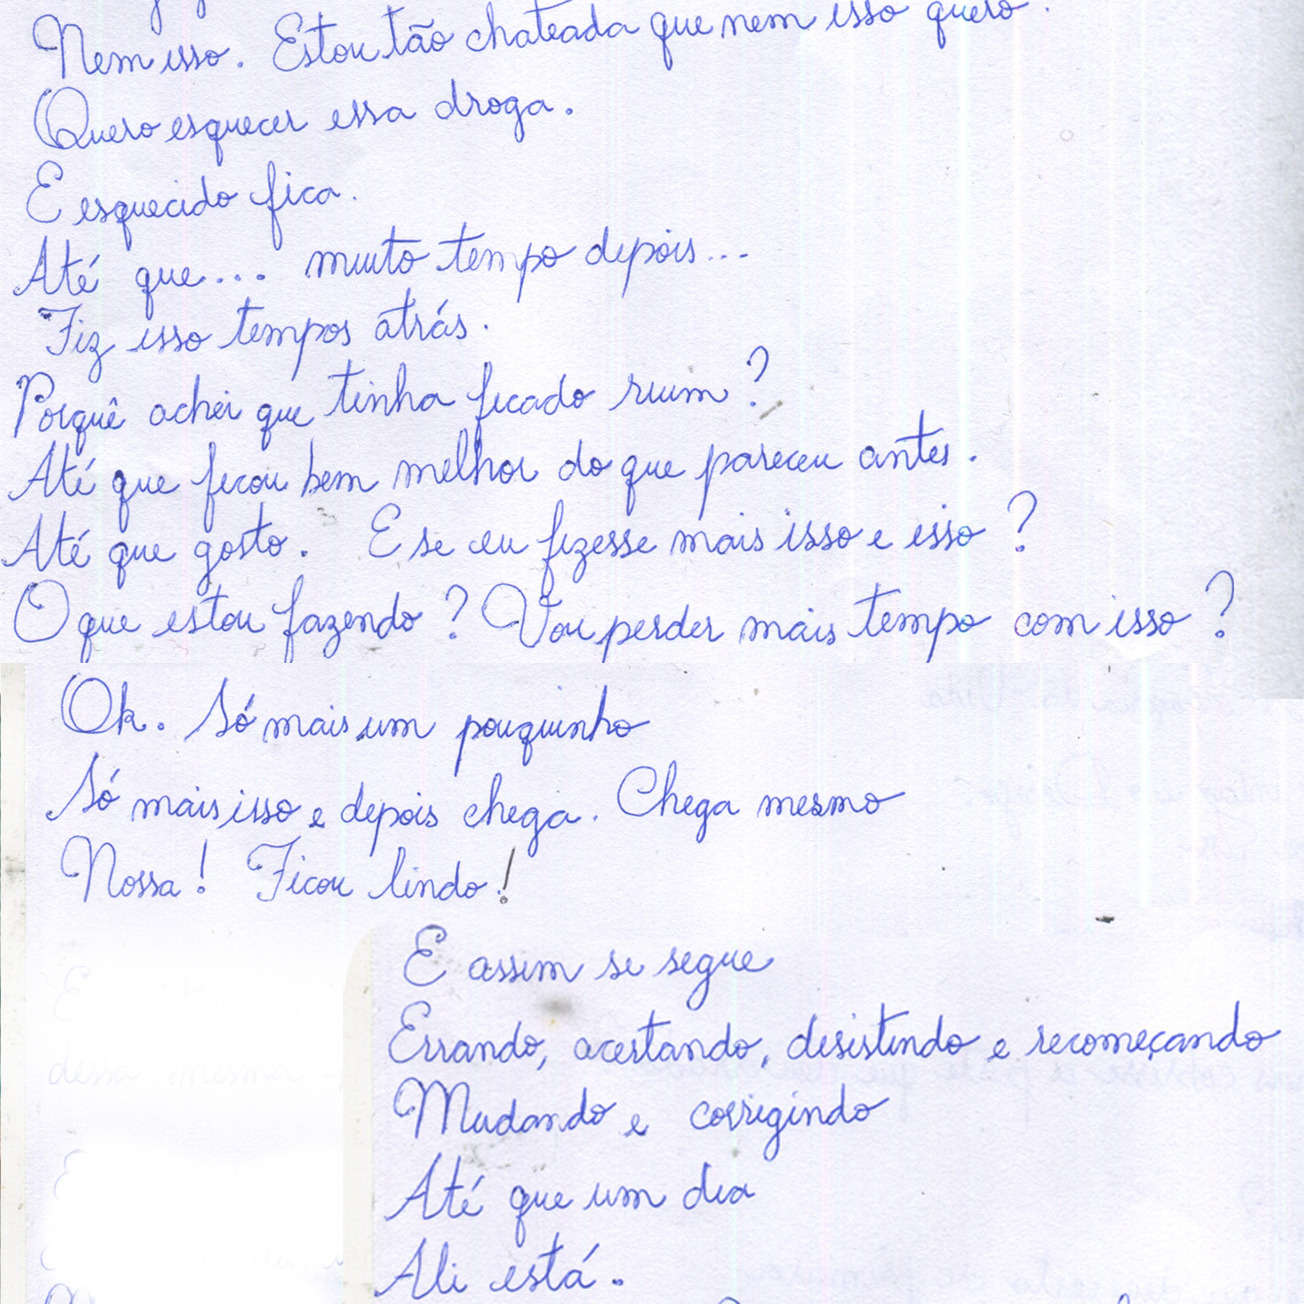 Nem isso. Estou tão chateada que nem isso quero.
Quero esquecer essa droga.
E esquecido fica.
Até que... muito tempo depois...
Fiz isso tempos atrás.
Porquê achei que tinha ficado ruim?
Até que ficou bem melhor do que pareceu antes.
Até que gosto. E se eu fizesse mais isso e isso?
O que estou fazendo? Vou perder mais tempo com isso?
Ok. Só mais um pouquinho
Só mais isso e depois chega. Chega mesmo
Nossa! Ficou lindo!
E assim se segue
Errando, acertando, desistindo e recomeçando
Mudando e corrigindo
Até que um dia
Ali está.